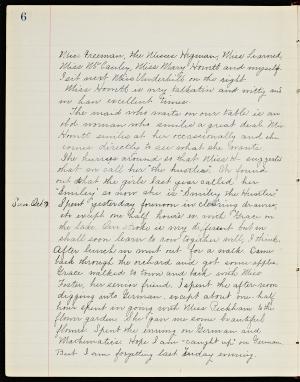 6
Miss Freeman, the Misses Higman, Miss Learned
Miss McCauley, Miss Mary Howitt and myself
I sit next Miss Underhill on the right.
Miss Howitt is very talkative and witty and
we have excellent times.
The maid who waits on our table is an
old woman who smiles a great deal. Miss
Howitt smiles at her occasionally and she
comes directly to see what she wants.
She hurries around so that Miss H. suggests
that we call her "the hustler". We found
out that the girls last year called her
"Smiley" so now she is "Smiley the Hustler"
Spent yesterday forenoon in cleaning drawers,
etc except one half hour in with Grace on
the lake. Our stroke is very different but we
shall soon learn to row together well, I think.
After lunch we went out for a walk. Came
back through the orchard and got some apples.
Grace walked to town and back with Miss
Foster, her senior friend. I spent the afternoon
digging into German, except about one half
hour spent in going with Miss Peckham to the
flower garden. She gave me some beautiful
flowers. Spent the evening on German and
Mathematics. Hope I am "caught up" on German.
But I am forgetting last Friday evening.